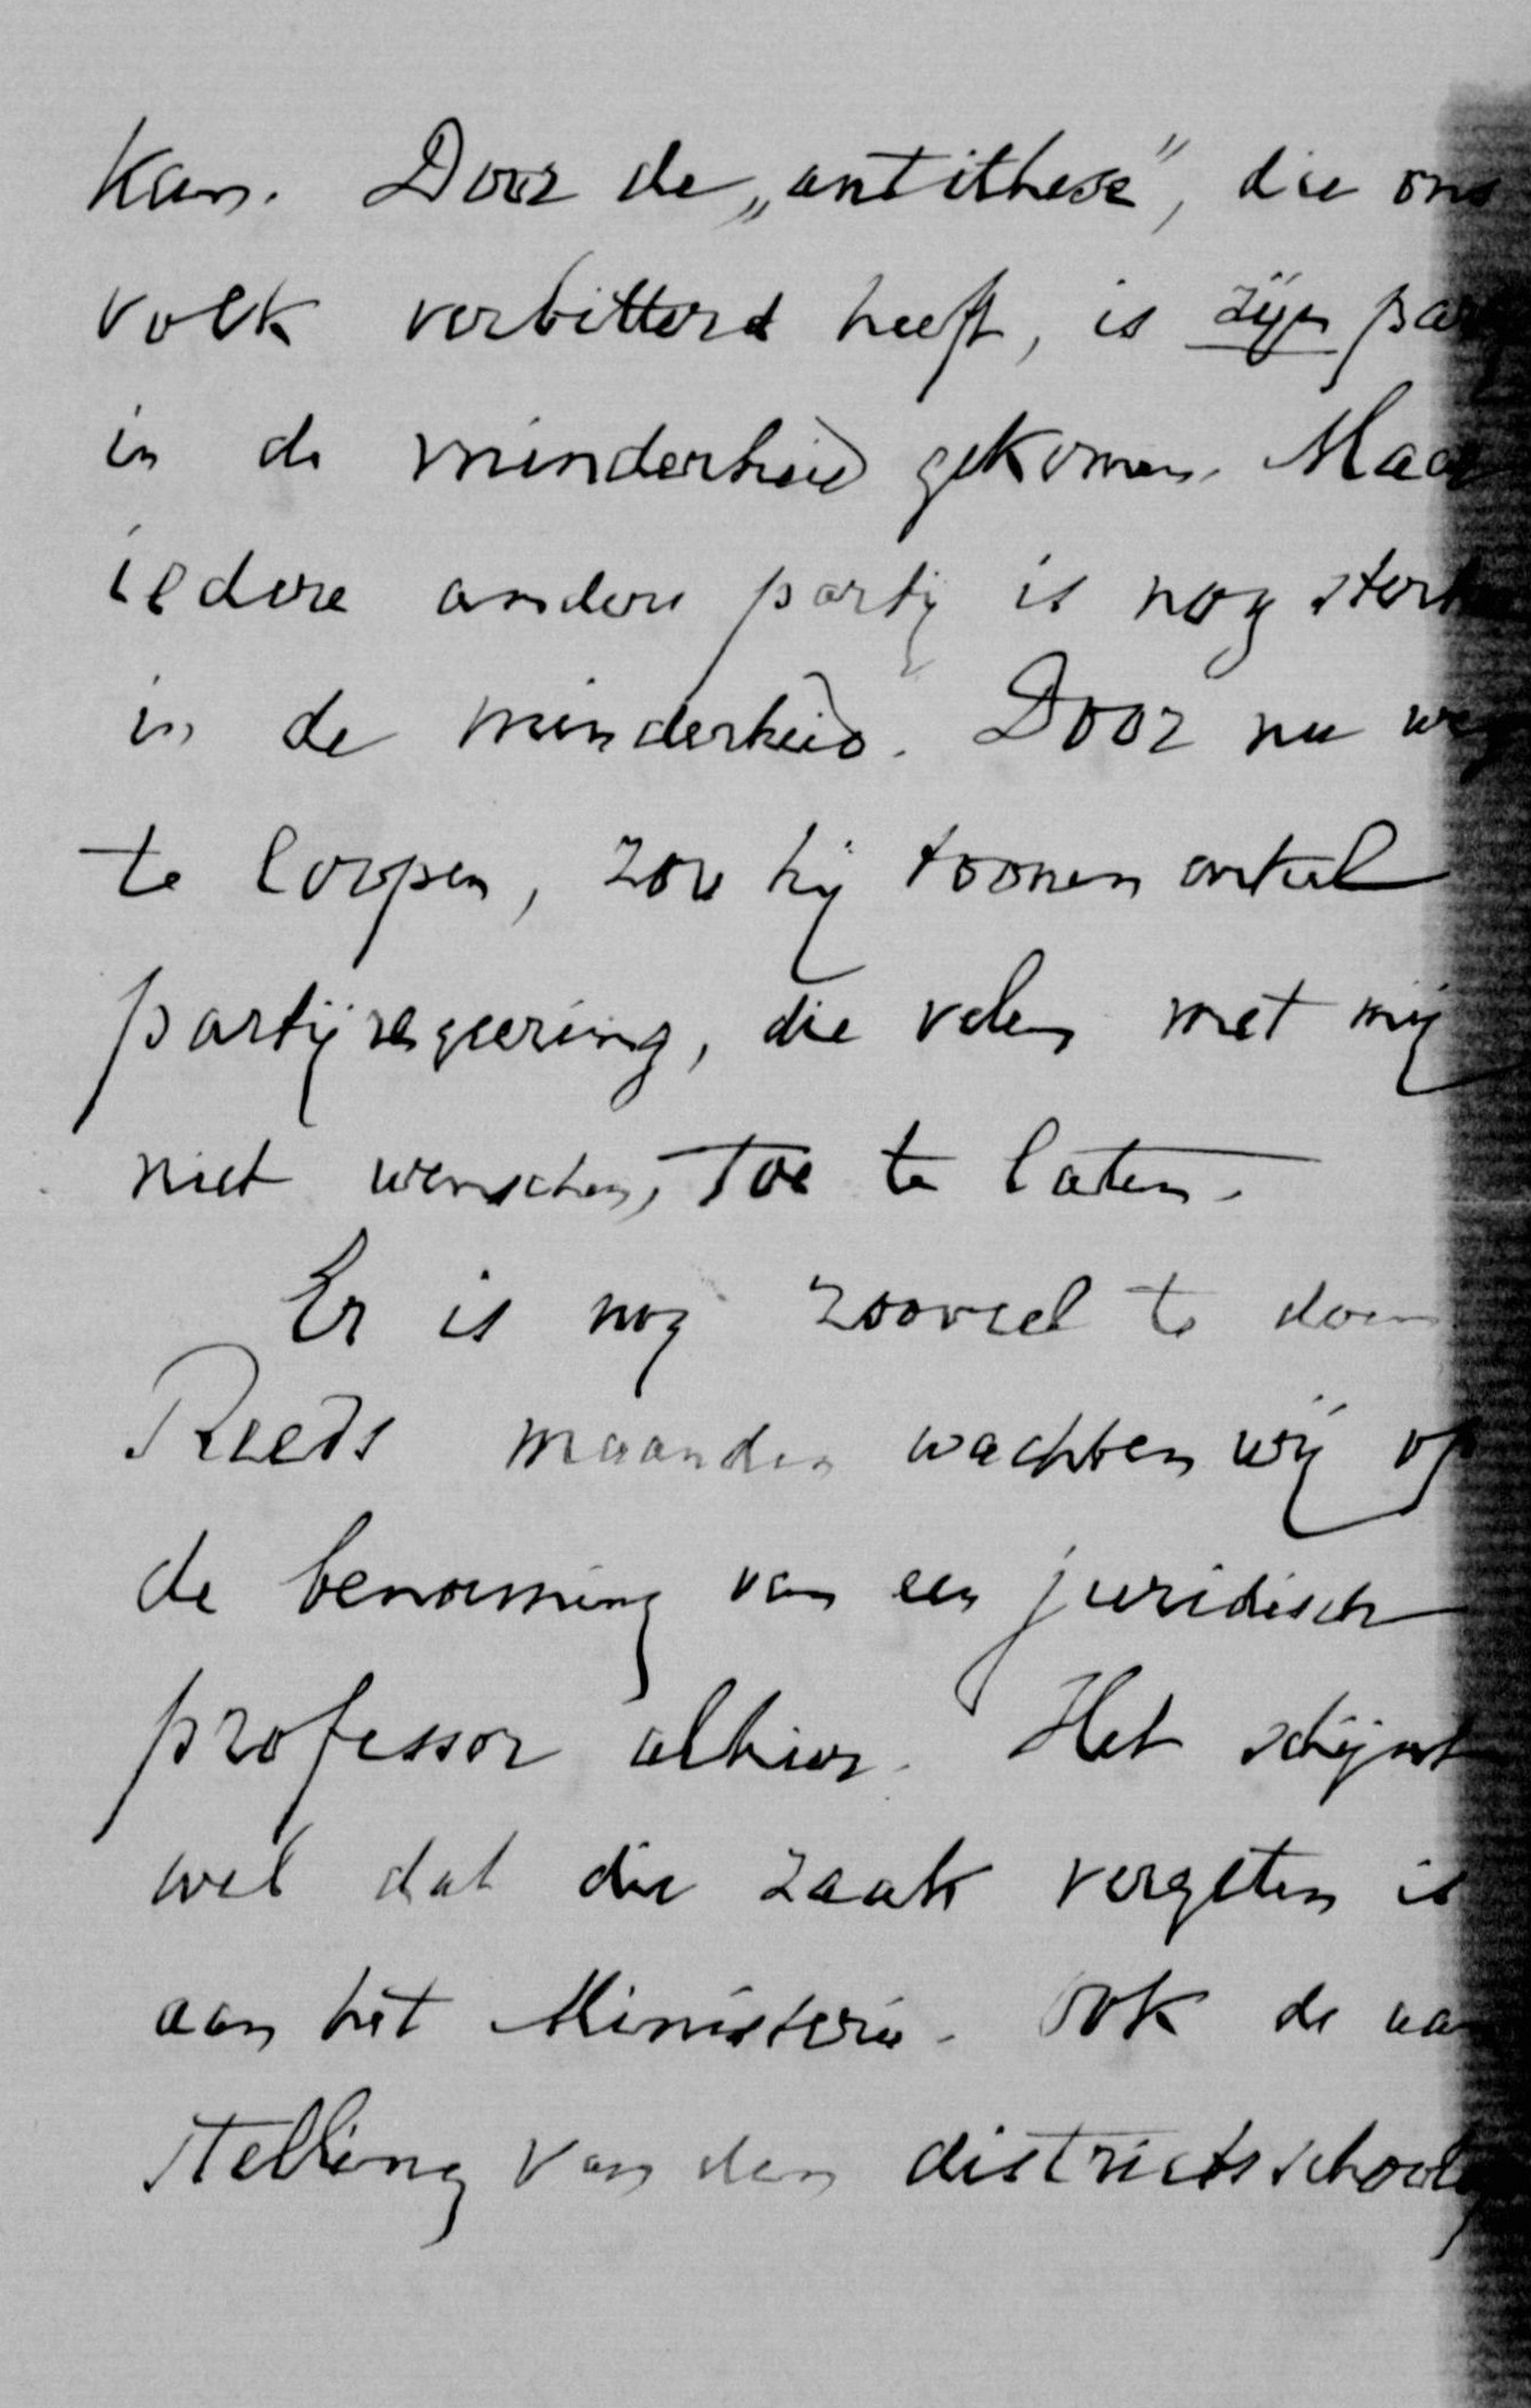 kan. Door de „antithese”, die ons
volk verbitterd heeft, is zijn par
in de minderheid gekomen. Maar
iedere andere partij is nog sterk
in de minderheid. Door nu weg
te loopen, zou hij toonen enkel
partijregeering, die velen met mij
niet wenschen, toe te laten.
Er is nog zooveel te doen
Reeds maanden wachten wij op
de benoeming van een juridisch
professor alhier. Het schijnt
wel dat die zaak vergeten is
aan het Ministerie. Ook de aan
stelling van den districtsschoolo